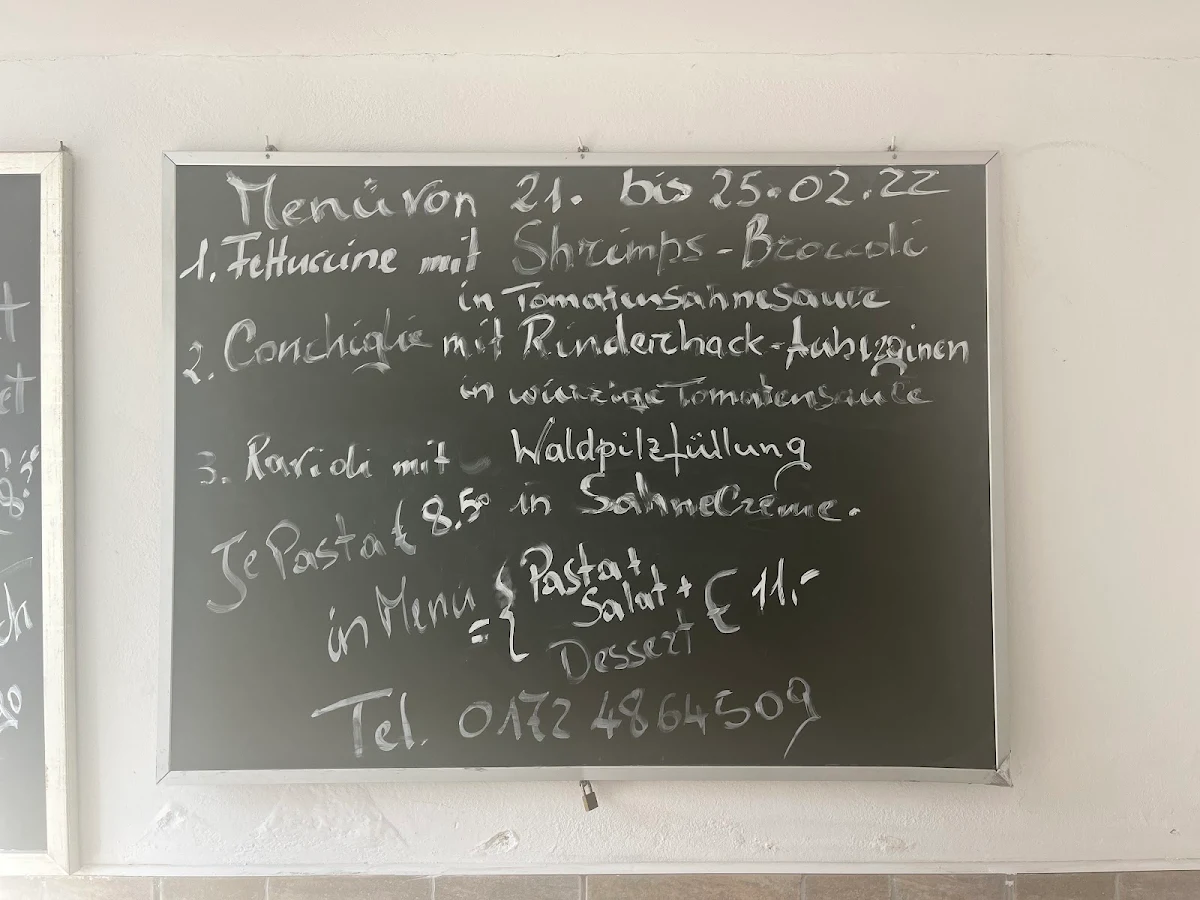 Menü von 21. bis 25.02.22
1. Fettuccine mit Shrimps-Broccoli
in Tomatensahnesauce
2. Conchiglie mit Rinderhack-Auberginen
in würzige Tomatensauce
3. Ravioli mit Waldpilzfüllung
in SahneCreme.
Je Pasta € 8.50
in Menü = { Pasta +
Salat +
Dessert
€ 11.-
Tel. 0172 4864509